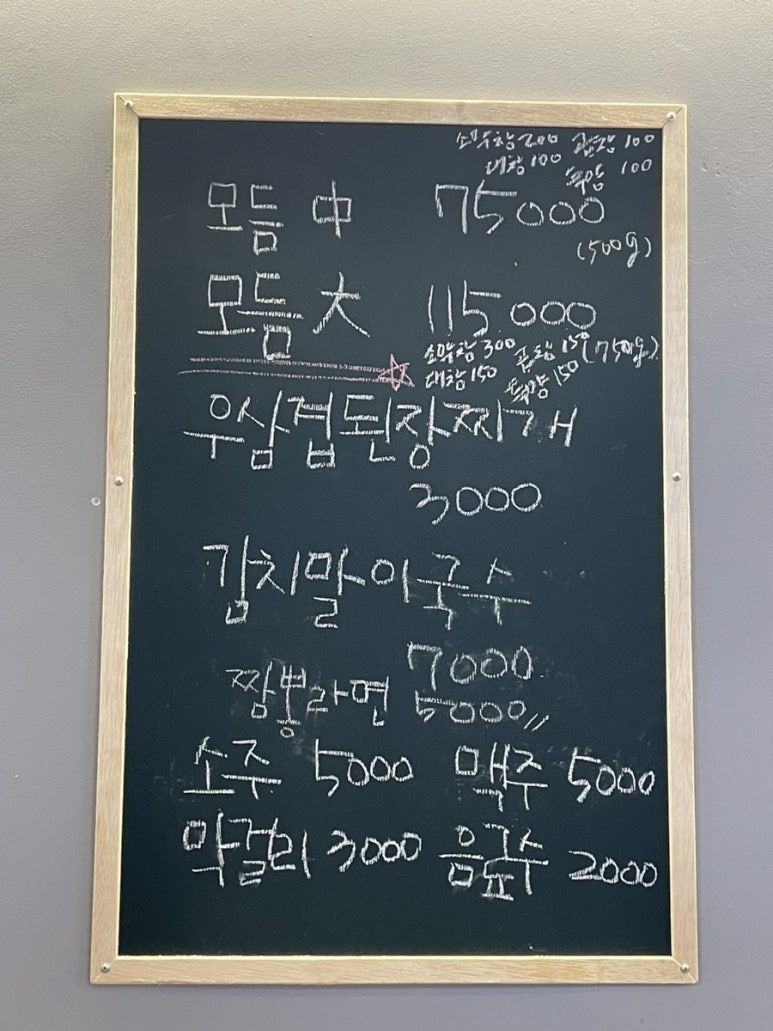 소막창 200 곱창 100
대창 100 특양 100
모듬 中 75000
(500g)
모듬 大 115.000
소막창 300 곱창 150 (750g)
대창 150 특양 150
우삼겹된장찌개
3000
김치말이국수
7000
짬뽕라면 5000
소주 5000 맥주 5000
막걸리 3000 음료수 2000